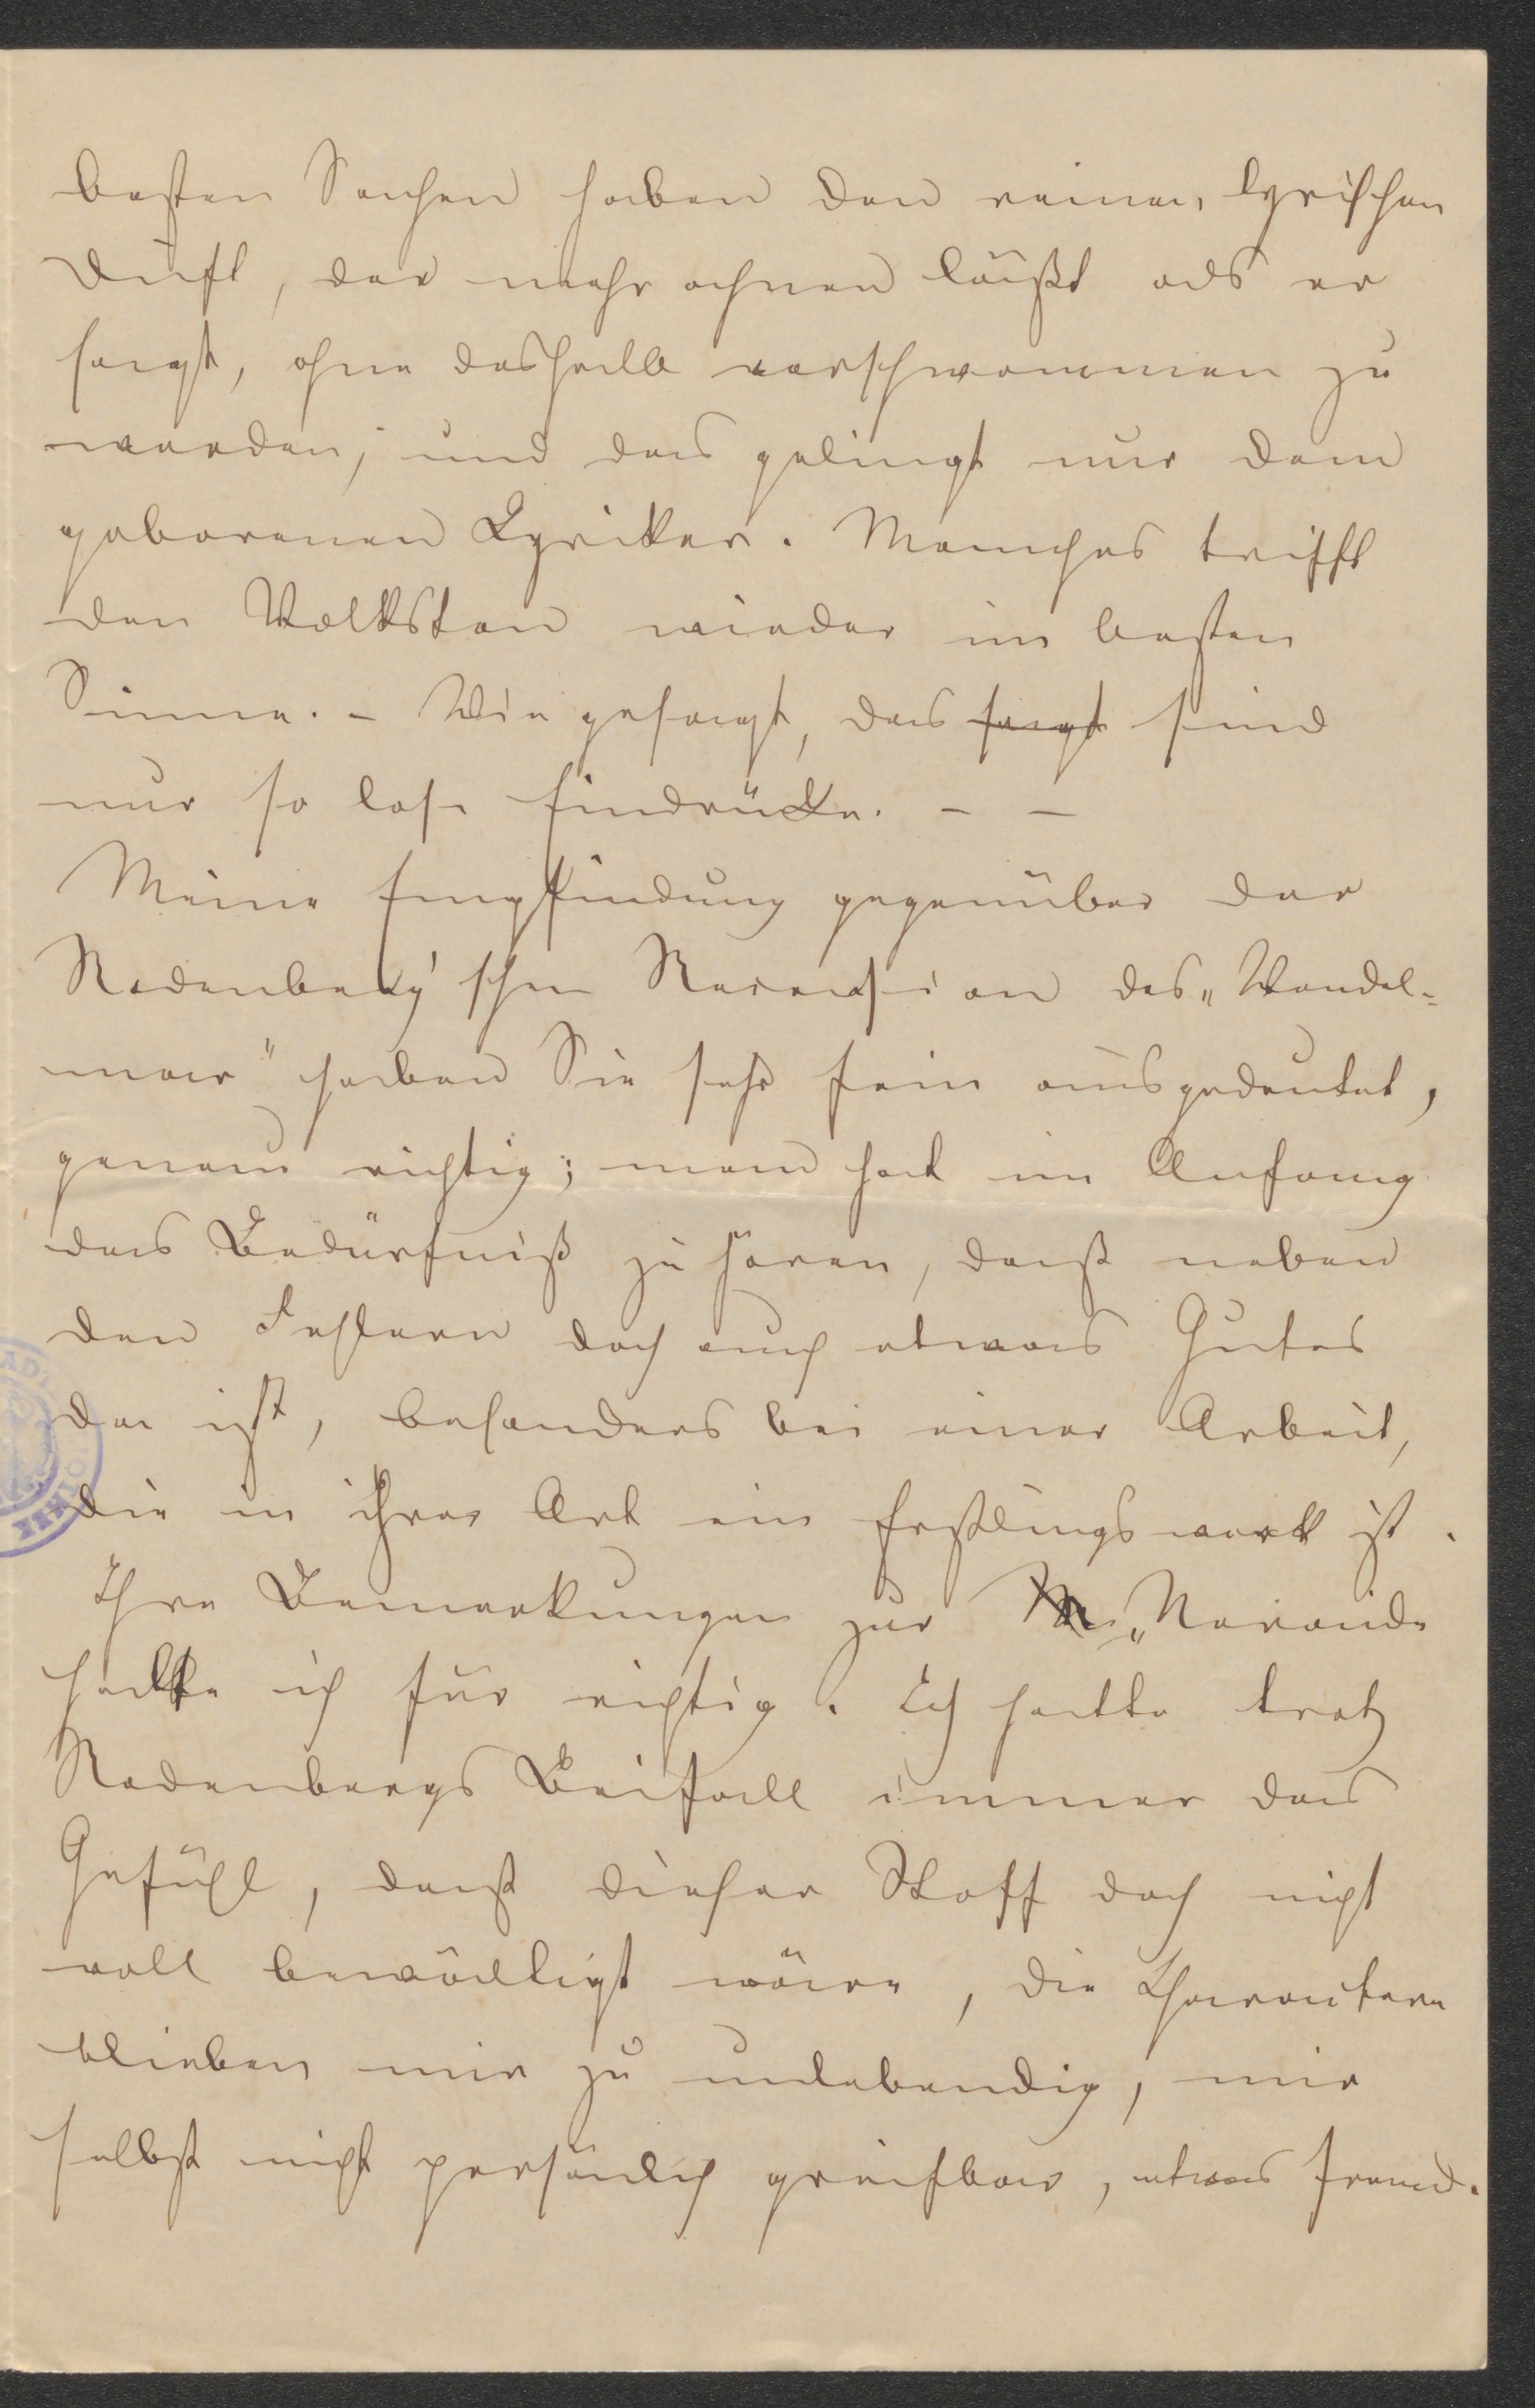 besten Sachen haben den reinen, lyrischen
Duft, der mehr ahnen läußt als er
sagt, ohne deshalb verschwommen zu
werden, und das gelingt nur dem
geborenen Lyriker. Manches trifft
den Volkston wieder im besten
Sinne. – Wie gesagt, das sagt sind
nur so lose Eindrücke. – –
Meine Empfindung gegenüber der
Rodenberg'schen Recension des „Wandel-
mar" haben Sie sehr fein ausgedeutet,
genau richtig; man hat im Anfang
das Bedürfniß zu hören, daß neben
den Fehlern doch auch etwas Gutes
da ist, besonders bei einer Arbeit,
die in ihrer Art ein Erstlingswerk ist.
Ihre Bemerkungen zur „Neraide
halte ich für richtig. Ich hatte trotz
Rodenbergs Beifall immer das
Gefühl, daß dieser Stoff doch nicht
voll bewältigt wäre, die Charaktere
blieben mir zu unlebendig, mir
selbst nicht persönlich greifbar, etwas fremd.